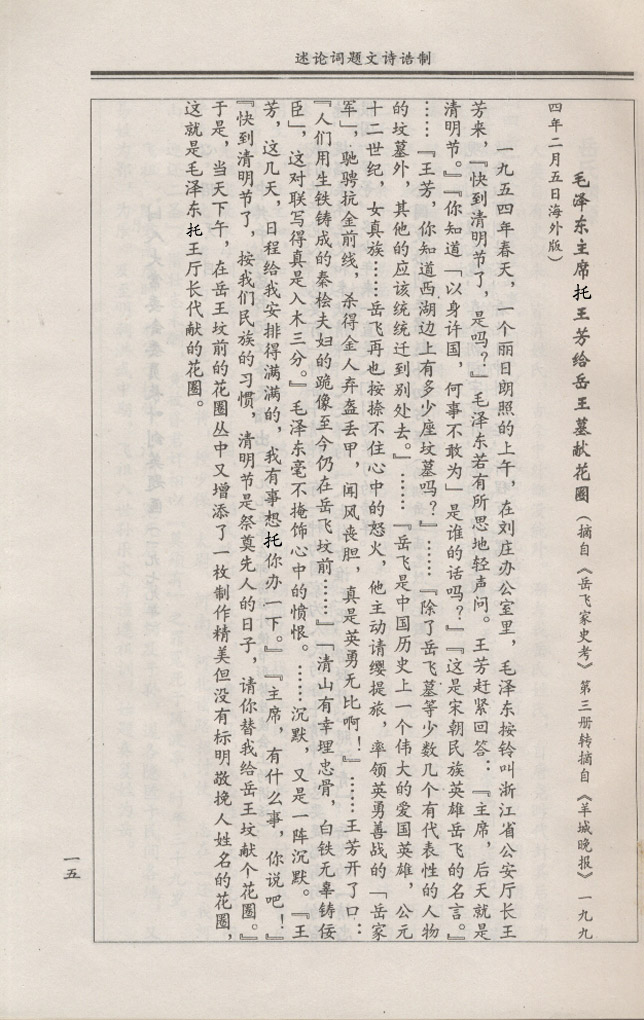 制诰诗文题词论述
毛泽东主席托王芳给岳王墓献花圈（摘自《岳飞家史考》第三册转摘自《羊城晚报》一九九
四年二月五日海外版）
一九五四年春天，一个丽日朗照的上午，在刘庄办公室里，毛泽东按铃叫浙江省公安厅长王
芳来，『快到清明节了，是吗？』毛泽东若有所思地轻声问。王芳赶紧回答：『主席，后天就是
清明节。』『你知道「以身许国，何事不敢为」是谁的话吗？』『这是宋朝民族英雄岳飞的名言。』
……『王芳，你知道西湖边上有多少座坟墓吗？』……『除了岳飞墓等少数几个有代表性的人物
的坟墓外，其他的应该统统迁到别处去。』……『岳飞是中国历史上一个伟大的爱国英雄，公元
十二世纪，女真族……岳飞再也按捺不住心中的怒火，他主动请缨提旅，率领英勇善战的「岳家
军」，驰骋抗金前线，杀得金人弃盔丢甲，闻风丧胆，真是英勇无比啊！』……王芳开了口：
『人们用生铁铸成的秦桧夫妇的跪像至今仍在岳飞坟前……』「清山有幸理忠骨，白铁无辜铸佞
臣」，这对联写得真是入木三分。』毛泽东毫不掩饰心中的愤恨。……沉默，又是一阵沉默。『王
芳，这几天，日程给我安排得满满的，我有事想托你办一下。』『主席，有什么事，你说吧！』
『快到清明节了，按我们民族的习惯，清明节是祭奠先人的日子，请你替我给岳王坟献个花圈。』
于是，当天下午，在岳王坟前的花圈丛中又增添了一枚制作精美但没有标明敬挽人姓名的花圈，
这就是毛泽东托王厅长代献的花圈。
一五